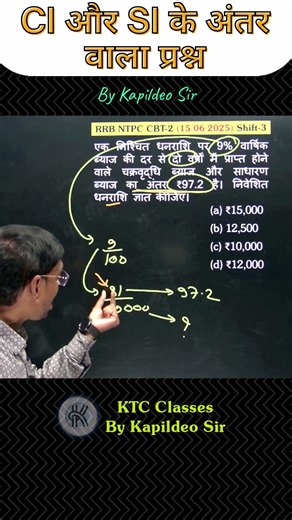 CI और SI के अंतर
वाला प्रश्न
By Kapildeo Sir
RRB NTPC CBT-2 (15 06 2025) Shift-3
एक निश्चित धनराशि पर 9% वार्षिक
ब्याज की दर से दो वर्षों में प्राप्त होने
वाले चक्रवृद्धि ब्याज और साधारण
ब्याज का अंतर ₹97.2 है। निवेशित
धनराशि ज्ञात कीजिए।
(a) ₹15,000
(b) 12,500
(c) ₹10,000
(d) ₹12,000
9
100
81 → 97.2
0000 → ?
KTC Classes
By Kapildeo Sir